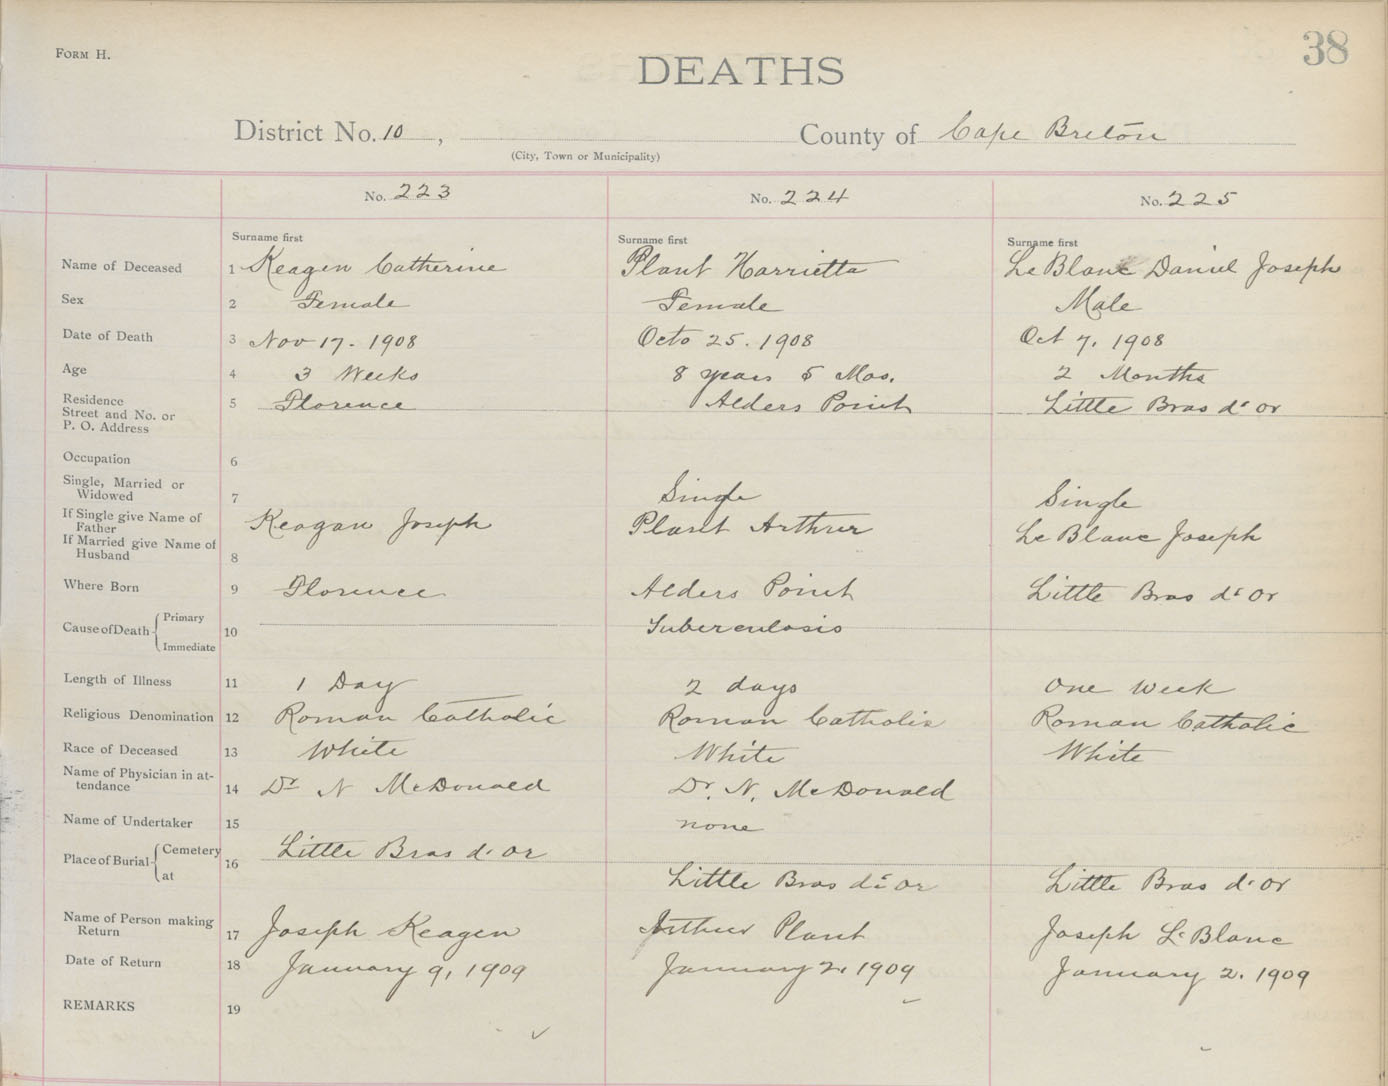 38
FORM H.
DEATHS
District No. 10, County of Cape Breton
(City, Town or Municipality)
No. 223 No. 224 No. 225
Surname first Surname first Surname first
Name of Deceased 1 Keagen Catherine Plant Harrietta Le Blanc Daniel Joseph
Sex 2 Female Female Male
Date of Death 3 Nov 17. 1908 Octo 25. 1908 Oct 7. 1908
Age 4 3 Weeks 8 years 5 Mos. 2 Months
Residence 5 Florence Alders Point Little Bras d'or
Street and No. or
P. O. Address
Occupation 6
Single, Married or
Widowed 7 Single Single
If Single give Name of
Father Keagan Joseph Plant Arthrer Le Blanc Joseph
If Married give Name of
Husband 8
Where Born 9 Florence Alders Point Little Bras d'or
Cause of Death Primary 10 Tuberculosis
Immediate
Length of Illness 11 1 Day 2 days One Week
Religious Denomination 12 Roman Catholic Roman Catholic Roman Catholic
Race of Deceased 13 White White White
Name of Physician in at-
tendance 14 Dr N McDonald Dr. N. McDonald
Name of Undertaker 15 none
Place of Burial Cemetery 16 Little Bras d'or
at Little Bras d'or Little Bras d'or
Name of Person making
Return 17 Joseph Keagen Arthur Plant Joseph Le Blanc
Date of Return 18 January 9, 1909 January 2. 1909 January 2. 1909
REMARKS 19